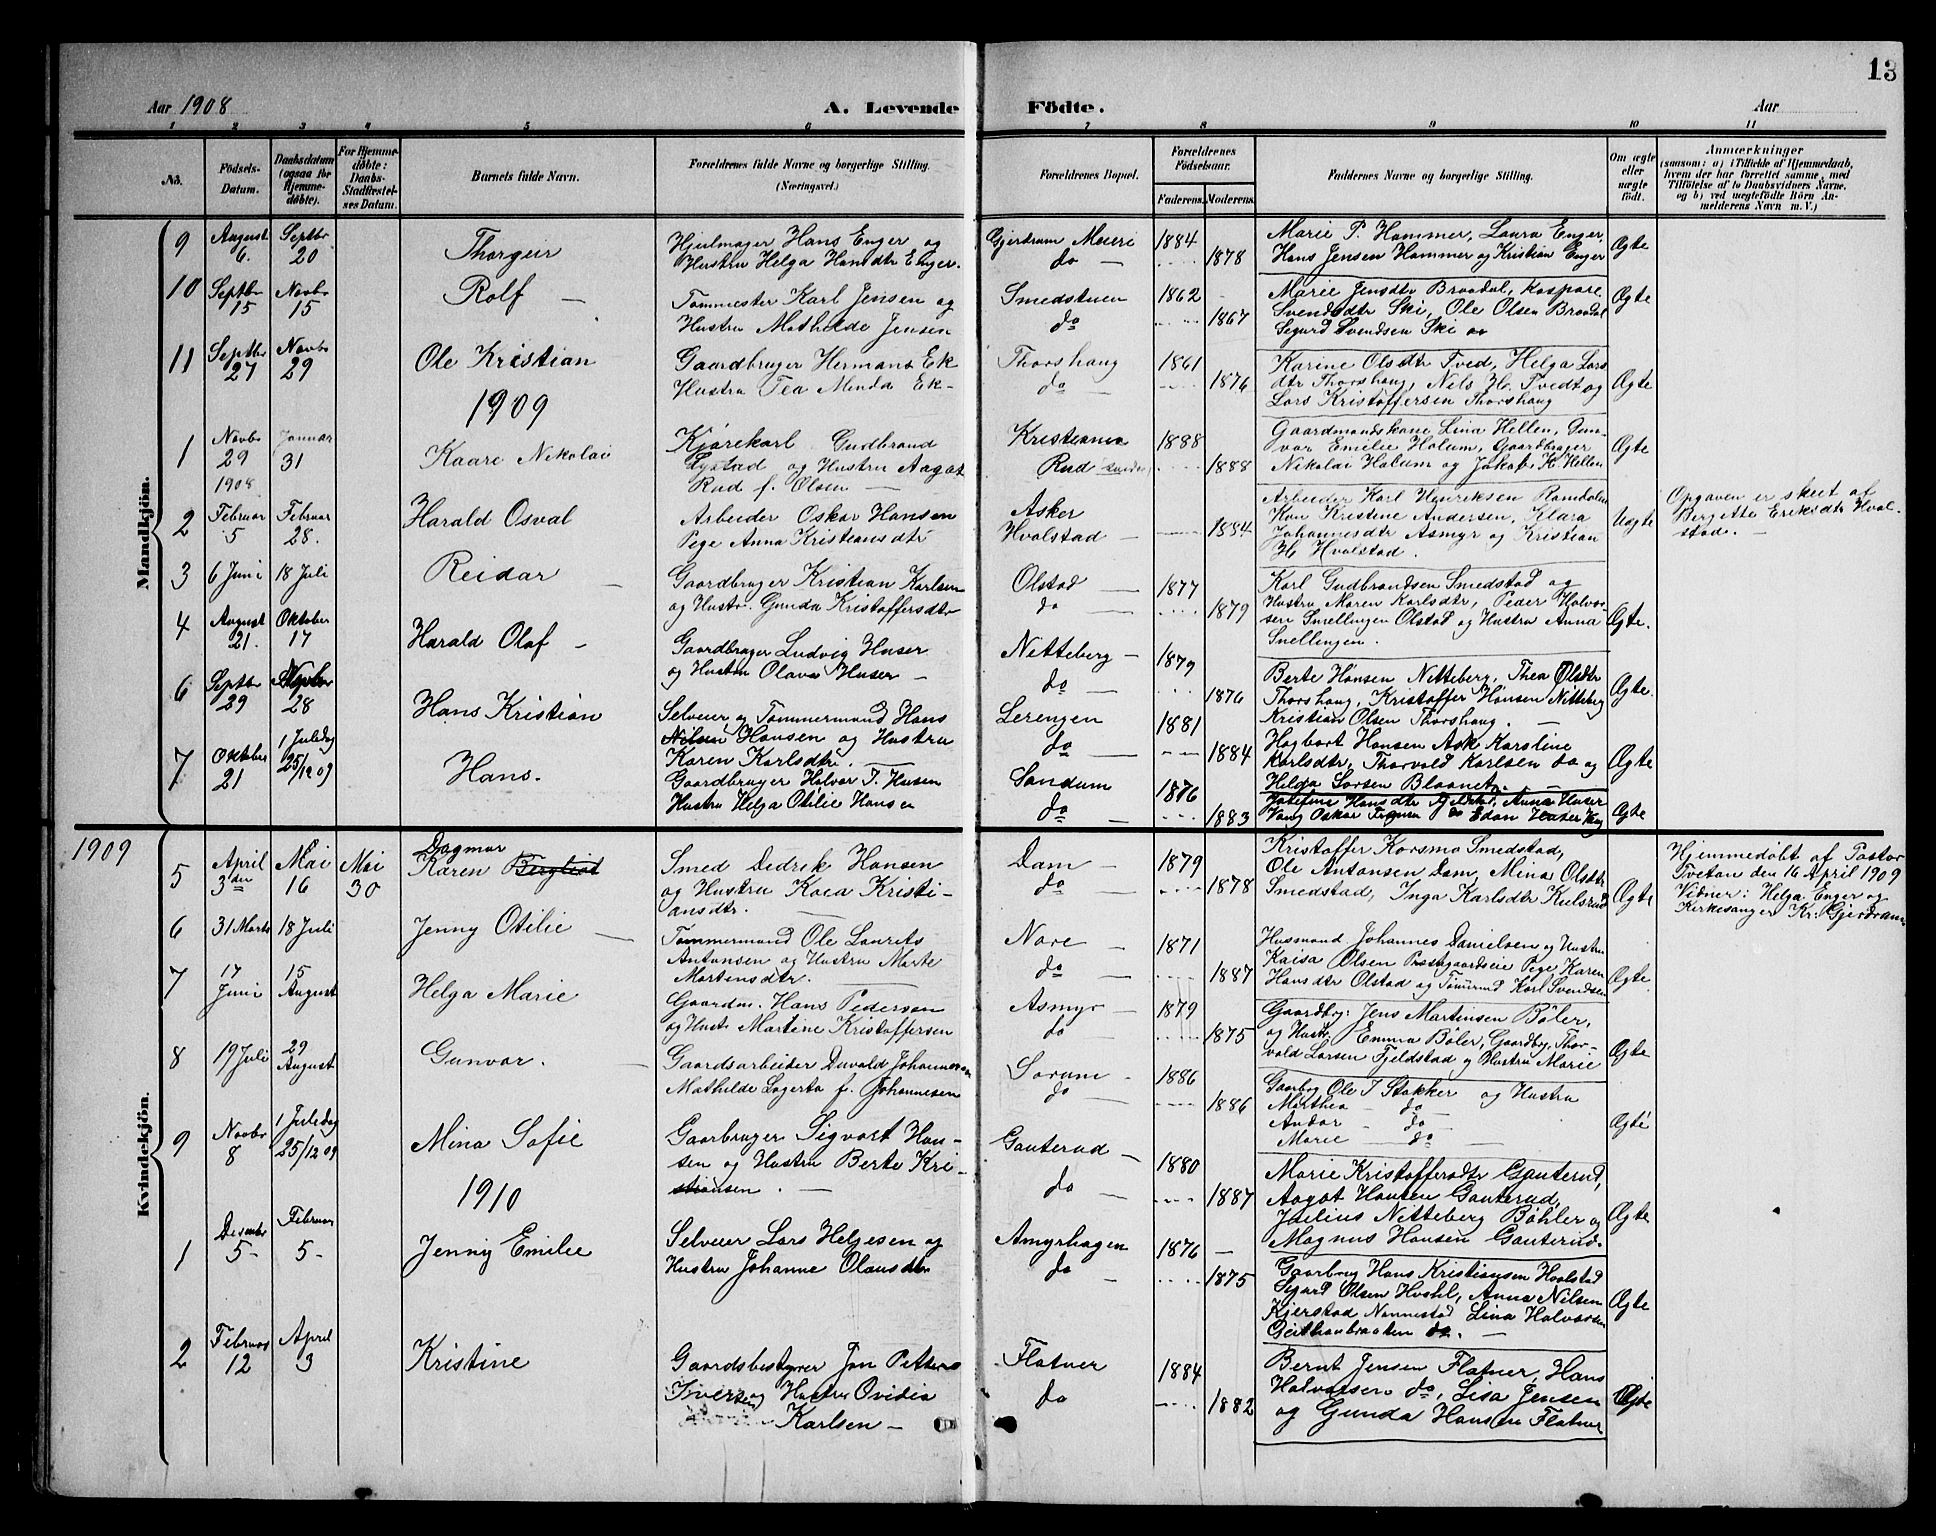 13
Aar 1908
A. Levende Födte.
Aar
1 2 3 4 5 6 7 8 9 10 11
No.
Födsels-Datum.
Daabsdatum (ogsaa for Hjemmedøbte).
For Hjemmedøbte: Daabs-Stadfæstelses Datum.
Barnets fulde Navn.
Forældrenes fulde Navne og borgerlige Stilling. (Næringsvei.)
Forældrenes Bopæl.
Forældrenes Födselsaar.
Faderens. Moderens.
Faddernes Navne og borgerlige Stilling.
Om ægte eller uægte født.
Anmærkninger
(saasom: a) i Tilfælde af Hjemmedaab, hvem der har forrettet samme, med Tilføielse af to Daabsvidners Navne, og b) ved uægtefödte Börn Anmelderens Navn m. V.)
Mandkjön.
9 August 6 Septbr 20 Thorgeir
Hjulmager Hans Enger og
Hustru Helga Hansdtr Enger.
Gjerdrum Meieri
do
1884 1878
Marie P. Hammer, Laura Enger,
Hans Jensen Hammer og Kristian Enger
Ægte
10 Septbr 15 Novbr 15 Rolf
Tommester Karl Jensen og
Hustru Mathilde Jensen
Smedstuen
do
1862 1867
Marie Jensdtr Braadal, Kaspare
Svendsdtr Ski, Ole Olsen Braadal
Sigurd Svendsen Ski
Ægte
11 Septbr 27 Novbr 29 Ole Kristian
Gaardbruger Herman Ek
Hustru Tea Minda Ek
Thorshaug
do
1861 1876
Karine Olsdtr Tved, Helga Lars
dtr Thorshaug, Nils H. Tvedt og
Lars Kristoffersen Thorshaug
Ægte
1909
1 Novbr 29 1908 Januar 31 Kaare Nikolai
Kjørekarl Gudbrand
Lystad og Hustru Aagot
Rud f. Olsen
Kristiania
Rud
1888 1888
Gaardmandskone Lina Hellen, Gun-
var Emilie Holum, Gaardbruger
Nikolai Holum og Jakob H. Hellen
Ægte
2 Februar 5 Februar 28. Harald Osval
Arbeider Oskar Hansen
Pige Anna Kristiansdtr
Asker
Hvalstad
1884
Arbeider Karl Henriksen
Kristine Andersen, Klara
Johannesdtr Asmyr og Kristian
H. Hvalstad.
Uægte
Opgaven er skeet af
Bergitte Eriksdtr Hval-
stad.
3 6 Juni 18 Juli Reidar
Gaardbruger Kristian Karlsen
og Hustr. Gunda Kristoffersdtr
Olstad
do
1877 1879
Karl Gudbrandsen Smedstad og
Hustru Maren Karlsdtr, Peder Halvor
sen Smellingen Olstad og Hustru Anna
Snellingen.
Ægte.
4 August 21. Oktober 17 Harald Olaf
Gaardbruger Ludvig Huser
og Hustru Olava Huser
Netteberg
do
1879 1876
Berte Hansen Netteberg, Thea Olsdtr
Thorshaug, Kristoffer Hansen Nitteberg
Kristian Olsen Thorshaug.
Ægte.
6 Septbr 29 Novbr 28 Hans Kristian
Selveier og Tømmermand Hans
Nilsen Hansen og Hustru
Karen Karlsdtr.
Lerengen
do
1881 1884
Hagbart Hansen Ask Karoline
Karlsdtr, Thorvald Karlsen do og
Helga Larsen
Ægte
7 Oktober 21 1 Juledag 25/12 09 Hans.
Gaardbruger Halvor T. Hansen
Hustru Helga Otilie Hansen
Sandum
do
1876 1883
Josefine Hansdtr Anna Huser
Oskar do Edan Huser
Ægte
1909
Kvindekjön.
5 April 3die Mai 16 Mai 30
Dagmar
Karen Bergliot
Smed Dedrik Hansen
og Hustru Kaca Kristi-
ansdtr.
Dam
do
1879 1878
Kristoffer Korsmo Smedstad,
Ole Antonsen Dam, Mina Olsdtr
Smedstad, Inga Karlsdtr Kulsrud
Ægte
Hjemmedøbt af Pastor
Tveton den 16 April 1909
Vidner: Helga Enger og
Kirkesanger Kr. Gjerdrum
6 31 Marts 18 Juli Jenny Otilie
Tømmermand Ole Laurits
Antonsen og Hustru Marte
Martensdtr.
Nore
do
1871 1887
Husmand Johannes Danielsen og Hustru
Kaisa Olsen Prestegaardseie Pige Karen
Hansdtr Olstad og Tømrmd Karl Svendsen
Ægte.
7 17 Juni 15 August Helga Marie
Gaardm. Hans Pedersen
og Hust. Martine Kristoffersen
Asmyr
do
1879 1875
Gaardbg: Jens Martinsen Bøler,
og Hustr. Emma Bøler, Gaardbg. Thor-
vald Larsen Fjeldstad og Hustru Marie
Ægte
8 19 Juli 29 August Gunvor.
Gaardsarbeider Duvald Johannesen
Mathilde Lagerta f. Johannesen
Sorum
do
1886 1886
Gaarbrg Ole J Stakker og Hustru
Marthea do
Andor do
Marie do
Ægte
9 Novbr 8 1 Juledag 25/12 09 Mina Sofie
Gaarbruger Sigvart Han-
sen og Hustru Berte Kri-
stiansen.
Gauterud
do
1880 1887
Marie Kristoffersdtr Gauterud,
Aagot Hansen Gauterud,
Julius Netteberg Bøhler og
Magnus Hansen Gauterud.
Ægte
1910
1 Desember 5 Februar 5 Jenny Emilie
Selveier Lars Helgesen og
Hustru Johanne Olausdtr
Amyrhagen
do
1876 1875
Gaarbrug Hans Kristiansen Hvalstad
Sigurd Olsen Anna Nilsen
Kjerstad Nannestad Lina Halvorsen
do.
Ægte
2 Februar 12 April 3 Kristine
Gaardsbestyrer Jon Petter
Iversen og Hustru Ovidia
Karlsen
Flatner
do
1884 1882
Bernt Jensen Flatner, Hans
Halvorsen do, Lisa Jensen
og Gunda Hansen Flatner
Ægte